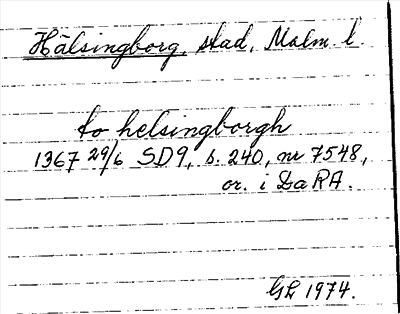 Hälsingborg, stad, Malm. l.
to helsingborgh
1367 29/6 SD9, s. 240, nr 7548,
or. i DaRA.
GL 1974.